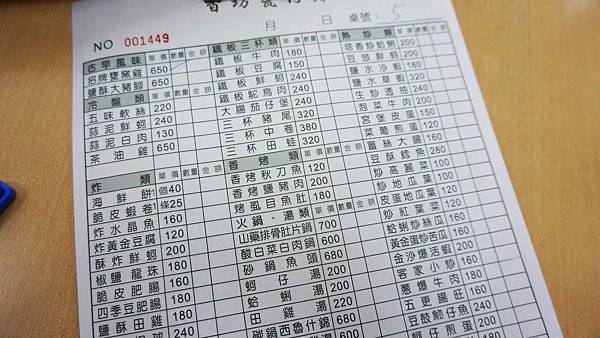 月 日 桌號: 5
NO 001449
古早風味 單價 數量 金額
招牌甕窯雞 650
鹽酥大豬腳 650
冷盤類 單價 數量 金額
五味軟絲 220
蒜泥鮮蚵 240
蒜泥白肉 130
茶油雞 650
炸類 單價 數量 金額
海鮮餅 個40
脆皮蝦卷 條25
炸水晶魚 160
炸黃金豆腐 120
酥炸鮮蚵 200
椒鹽龍珠 180
脆皮肥腸 160
四季豆肥腸 180
鹽酥田雞 240
鐵板三杯類 單價 數量 金額
鐵板牛肉 180
鐵板豆腐 150
鐵板鮮蚵 200
鐵板鴕鳥肉 240
大腸茄仔煲 240
三杯豬尾 320
三杯中卷 380
三杯田蛙 320
香烤類 單價 數量 金額
香烤秋刀魚 120
香烤鹽豬肉 200
烤虱目魚肚 180
火鍋、湯類 單價 數量 金額
山藥排骨肚片鍋 700
酸白菜白肉鍋 600
砂鍋魚頭 680
蚵仔湯 200
蛤蜊湯 200
田雞湯 220
碰鍋西魯什錦 680
熱炒類 單價 數量 金額
塔香炒蛤蜊 200
豆豉鮮蚵 200
鹽水沙蝦 180
鹽水草蝦 320
生炒透抽 240
泡菜牛肉 200
宮保皮蛋 150
菜葡煎蛋 120
薑絲大腸 160
豆酥鱈魚 280
炒高麗菜 100
炒地瓜葉 120
皮蛋地瓜葉 120
炒紅菜 120
蛤蜊炒絲瓜 160
黃金蛋炒苦瓜
金沙爆活蝦 200
客家小炒 160
蔥爆牛肉 180
五更腸旺 160
豆鼓魩仔魚 240
蚵仔煎蛋 200